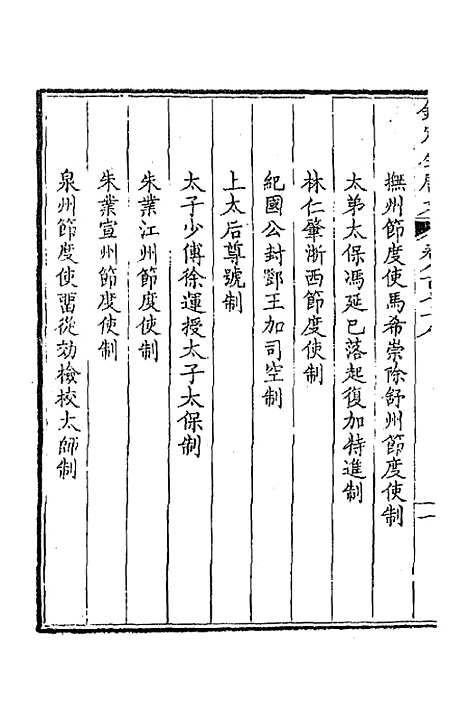 撫州節度使馬希崇除舒州節度使制
太弟太保馮延巳落起復加特進制
林仁肇浙西節度使制
紀國公封鄧王加司空制
上太后尊號制
太子少傅徐運授太子太保制
朱業江州節度使制
朱業宣州節度使制
泉州節度使留從効檢校太師制